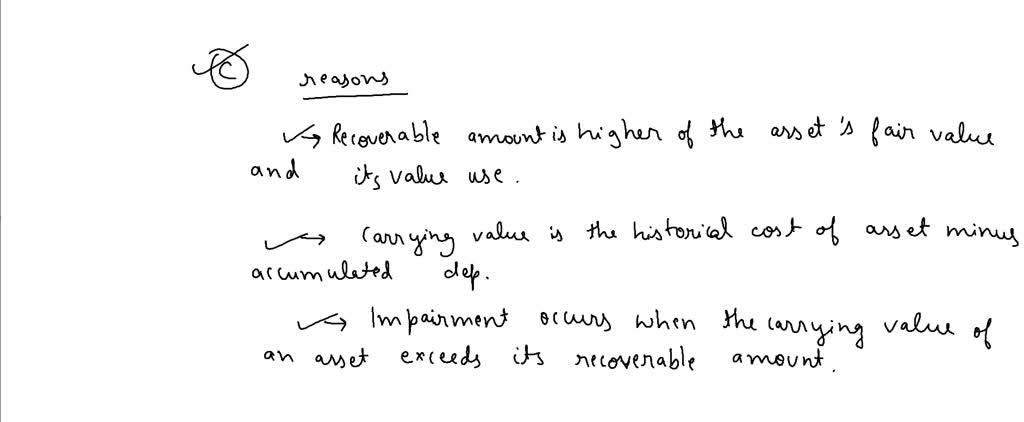 C
reasons
→ Recoverable amount is higher of the asset's fair value
and its value use.
→ Carrying value is the historical cost of asset minus
accumulated dep.
→ Impairment occurs when the carrying value of
an asset exceeds its recoverable amount.